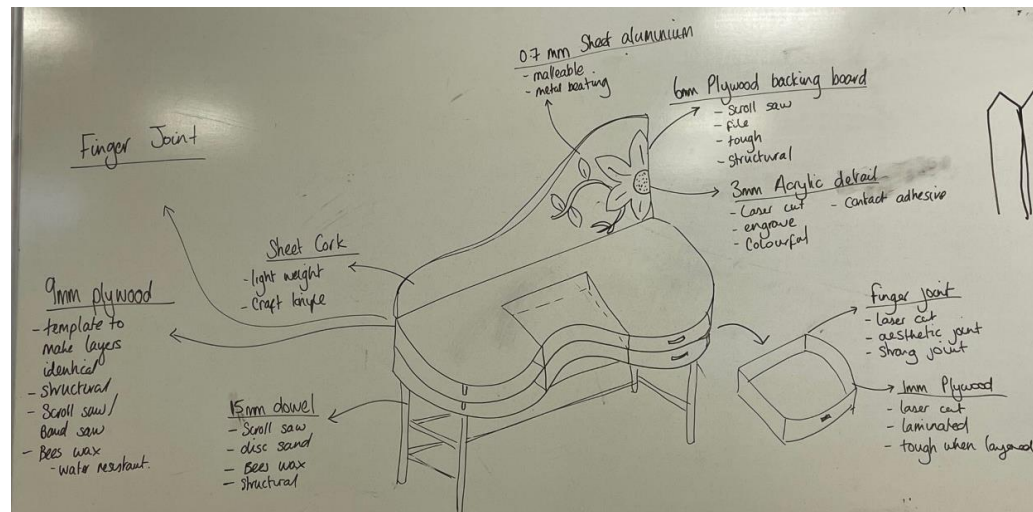 0.7 mm Sheet aluminium
- malleable
- metal beating
6mm Plywood backing board
- Scroll saw
- file
- tough
- structural
3mm Acrylic detail
- Laser cut - Contact adhesive
- engrave
- Colourful
Finger Joint
Sheet Cork
- light weight
- Craft knife
9mm plywood
- template to
make layers
identical
- structural
- Scroll saw/
Band saw
- Bees wax
- water resistant.
15mm dowel
- Scroll saw
- disc sand
- Bees wax
- structural
finger joint
- laser cut
- aesthetic joint
- strong joint
1mm Plywood
- laser cut
- laminated
- tough when layered